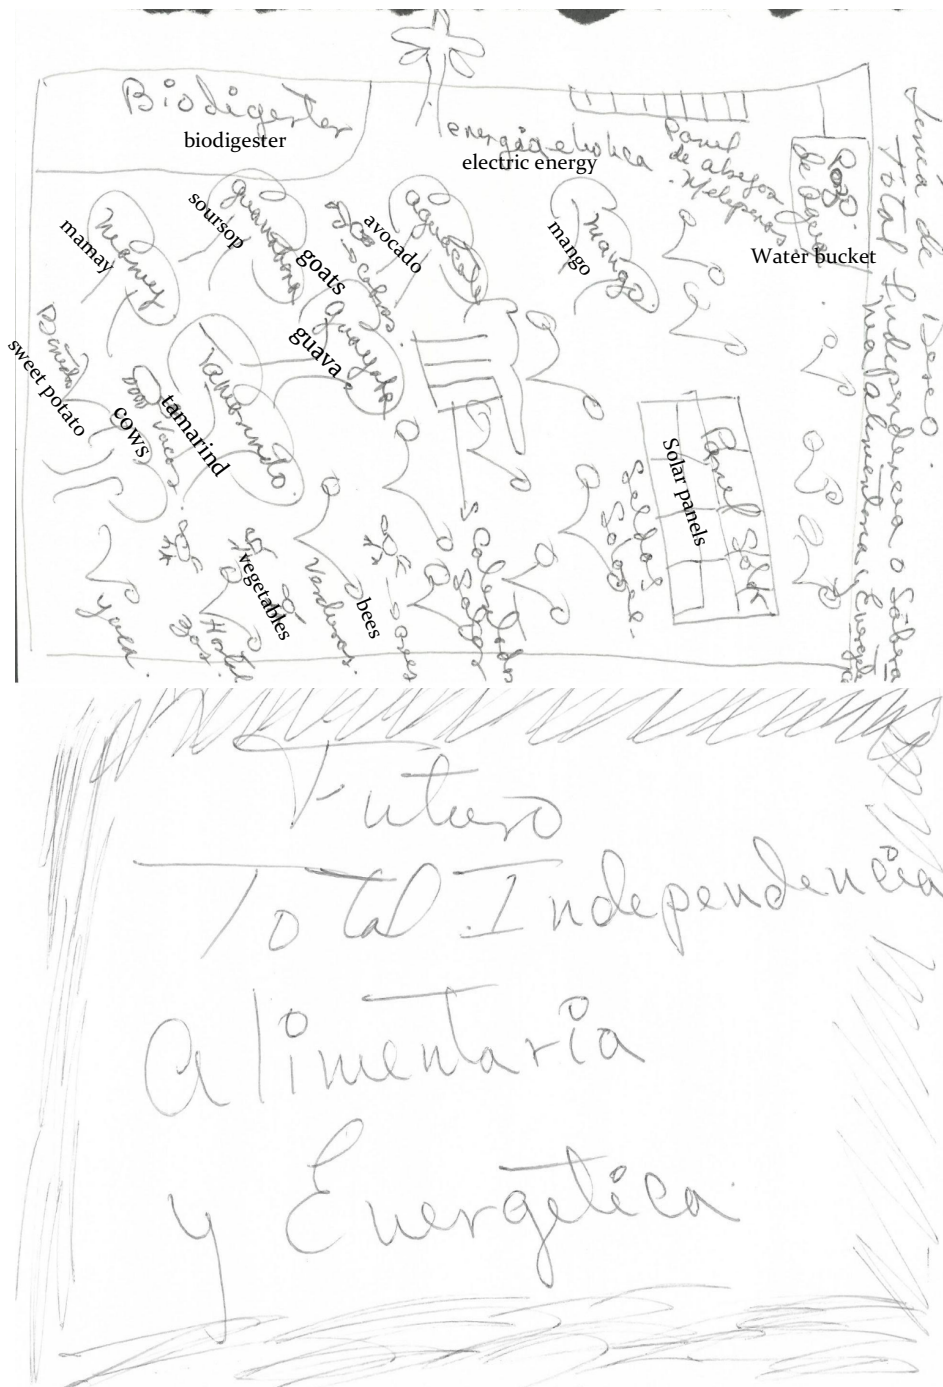 Biodigester
biodigester
energía eolica
electric energy
Panel
de abejas
Meliponas
Pozo
de agua
Water bucket
Total Independencia o Sobera
nia Alimentaria y Energetica
Mamey
mamay
guanabana
soursop
cabras
goats
aguacate
avocado
mango
mango
guayaba
guava
sweet potato
vacas
cows
tamarindo
tamarind
Panel Solar
Solar panels
Celdas
Solar
Calentador
Solar
yuca
Hortal
izas
vegetables
Verduras
bees
aves
Futuro
Total Independencia
Alimentaria
y Energetica